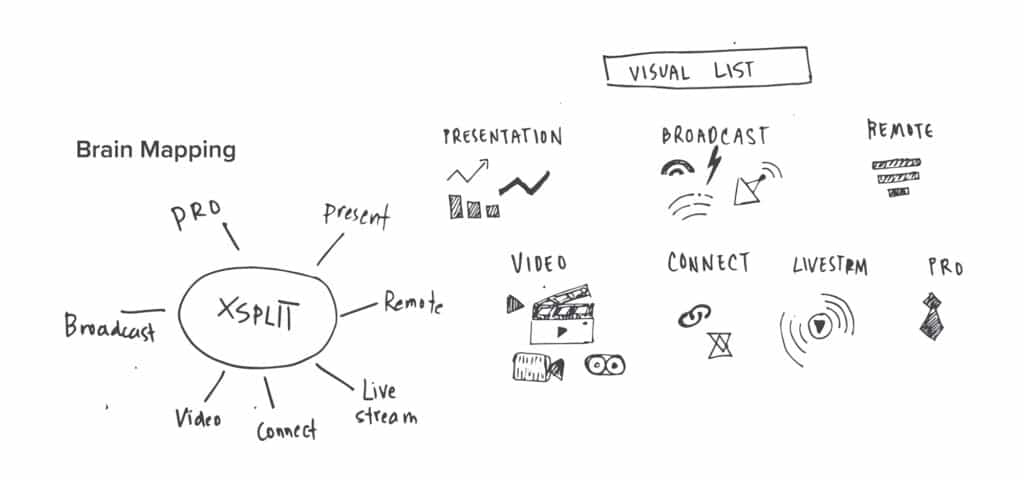 VISUAL LIST
Brain Mapping
PRO
Present
Broadcast
XSPLIT
Remote
Video
Connect
Live
stream
PRESENTATION
BROADCAST
REMOTE
VIDEO
CONNECT
LIVESTRM
PRO